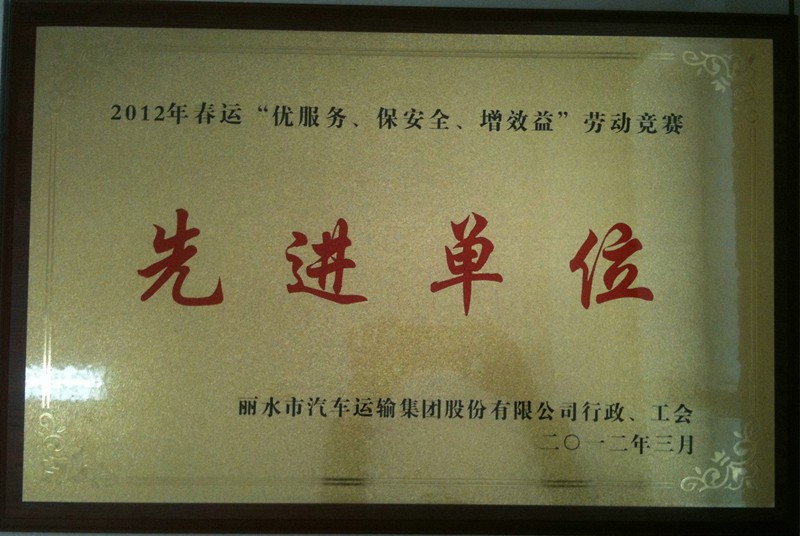 2012年春运“优服务、保安全、增效益”劳动竞赛
先进单位
丽水市汽车运输集团股份有限公司行政、工会
二〇一二年三月